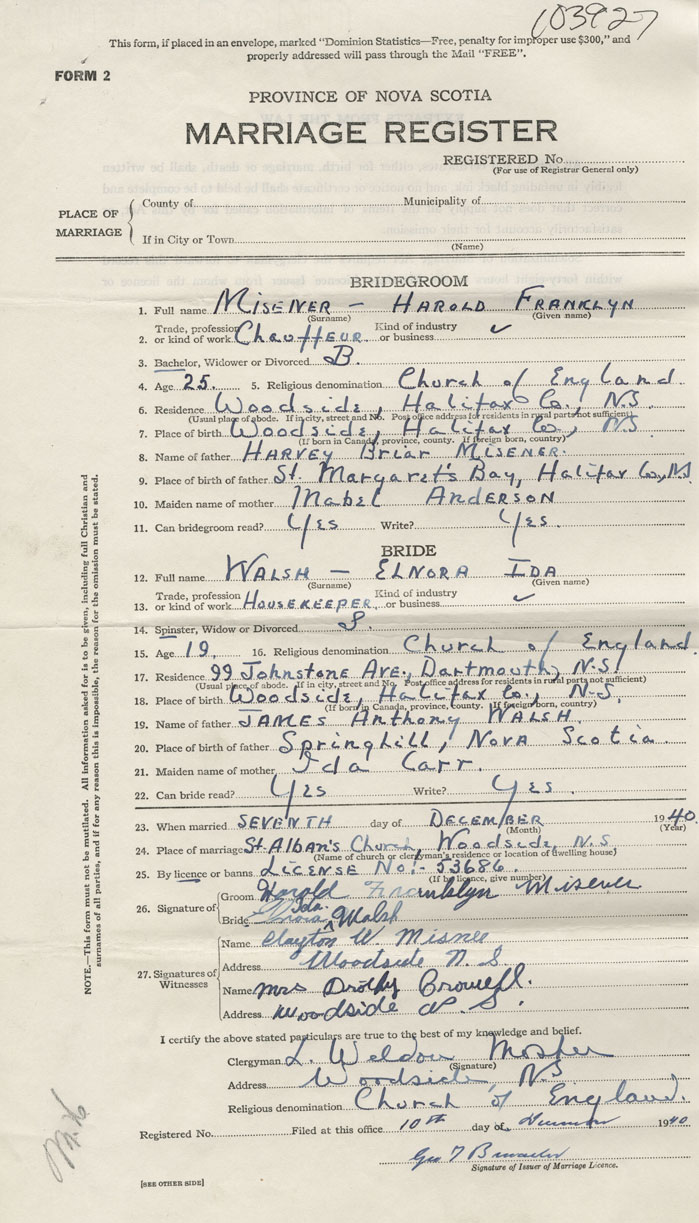 103927
This form, if placed in an envelope, marked "Dominion Statistics—Free, penalty for improper use $300," and
properly addressed will pass through the Mail "FREE".
FORM 2
PROVINCE OF NOVA SCOTIA
MARRIAGE REGISTER
REGISTERED No.
(For use of Registrar General only)
PLACE OF MARRIAGE
County of Municipality of
If in City or Town
(Name)
BRIDEGROOM
1. Full name MISENER — HAROLD FRANKLYN
(Surname) (Given name)
2. Trade, profession or kind of work Chauffeur Kind of industry or business ✓
3. Bachelor, Widower or Divorced B.
4. Age 25. 5. Religious denomination Church of England.
6. Residence Woodside, Halifax Co., N.S.
(Usual place of abode. If in city, street and No. Post office address for residents in rural parts not sufficient)
7. Place of birth Woodside, Halifax Co., N.S.
(If born in Canada, province, county. If foreign born, country)
8. Name of father HARVEY Briar MISENER.
9. Place of birth of father St. Margaret's Bay, Halifax Co., N.S.
10. Maiden name of mother Mabel ANDERSON
11. Can bridegroom read? Yes Write? Yes.
BRIDE
12. Full name WALSH — ELNORA IDA
(Surname) (Given name)
13. Trade, profession or kind of work HOUSEKEEPER Kind of industry or business ✓
14. Spinster, Widow or Divorced S.
15. Age 19. 16. Religious denomination Church of England.
17. Residence 99 Johnstone Ave., Dartmouth, N.S.
(Usual place of abode. If in city, street and No. Post office address for residents in rural parts not sufficient)
18. Place of birth Woodside, Halifax Co., N.S.
(If born in Canada, province, county. If foreign born, country)
19. Name of father JAMES Anthony WALSH.
20. Place of birth of father Springhill, Nova Scotia.
21. Maiden name of mother Ida Carr.
22. Can bride read? Yes Write? Yes.
23. When married SEVENTH day of DECEMBER 1940.
(Month) (Year)
24. Place of marriage St Alban's Church, Woodside, N.S
(Name of church or clergyman's residence or location of dwelling house)
25. By licence or banns LICENSE No:- 53686.
(If by licence, give number)
26. Signature of
Groom Harold Franklyn Misener
Bride Ida Walsh
27. Signatures of Witnesses
Name Clayton W. Misner
Address Woodside N.S.
Name Mrs Drothy Browell.
Address Woodside N.S.
I certify the above stated particulars are true to the best of my knowledge and belief.
Clergyman L. Weldon Mosher
(Signature)
Address Woodside, N.S
Religious denomination Church of England.
Registered No. Filed at this office 10th day of 1940
Geo
Signature of Issuer of Marriage Licence.
[SEE OTHER SIDE]
NOTE.—This form must not be mutilated. All information asked for is to be given, including full Christian and
surnames of all parties, and if for any reason this is impossible, the reason for the omission must be stated.